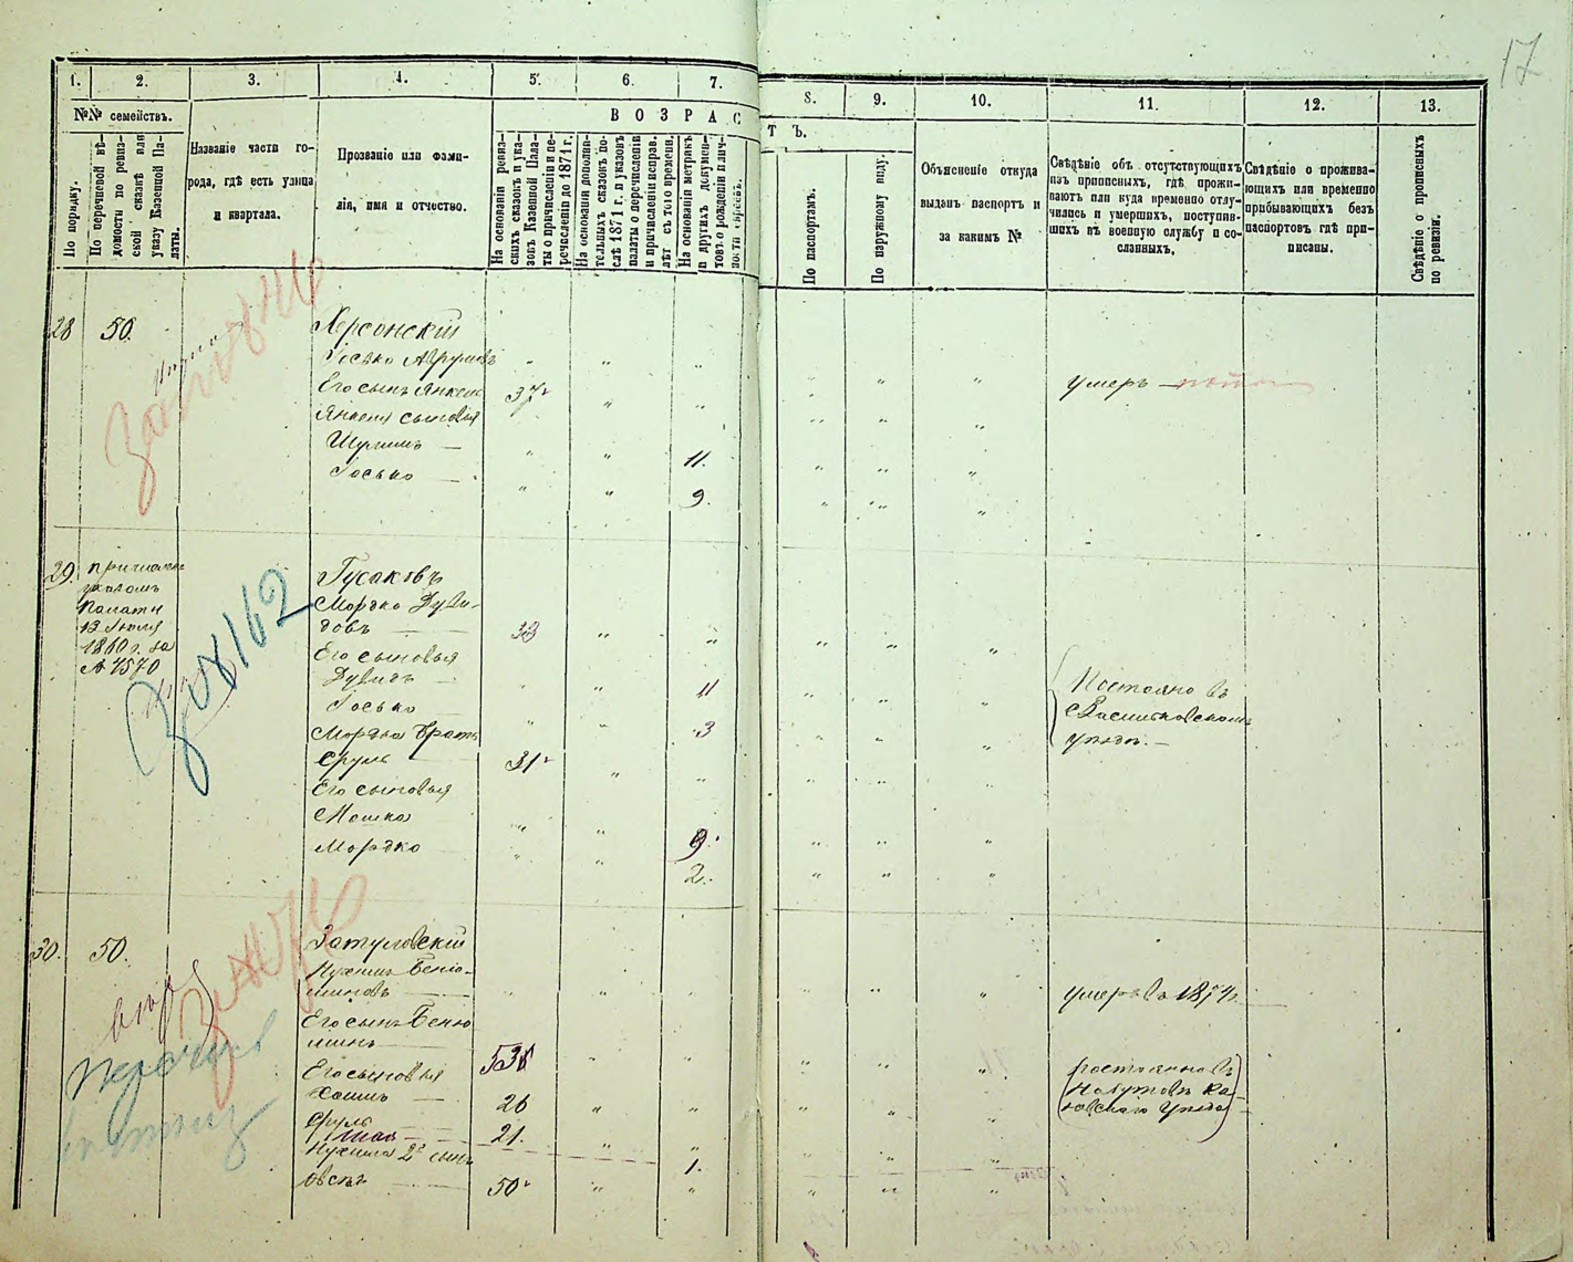 17
1. 2. 3. 4. 5. 6. 7. 8. 9. 10. 11. 12. 13.
№№ семействъ.
По порядку.
По перечневой вѣ-
домости по ревиз-
ской сказкѣ или
указу Казенной Па-
латы.
Названіе части го-
рода, гдѣ есть улица
и квартала.
Прозваніе или фами-
лія, имя и отчество.
ВОЗРАС
ТЪ.
На основаніи ревиз-
скихъ сказокъ и ука-
зовъ Казенной Пала-
ты о причисленіи и пе-
речисленіи до 1871 г.
На основаніи дополни-
тельныхъ сказокъ по-
слѣ 1871 г. и указовъ
палаты о перечисленіи
и причисленіи исправ.
лѣт съ того времени.
На основаніи метрикъ
и другихъ докумен-
товъ о рожденіи и лич-
ности евреевъ.
По паспортамъ.
По наружному виду.
Объясненіе откуда
выданъ паспортъ и
за какимъ №
Свѣдѣніе объ отсутствующихъ
изъ приписныхъ, гдѣ прожи-
ваютъ или куда временно отлу-
чились и умершихъ, поступив-
шихъ въ военную службу и со-
сланныхъ.
Свѣдѣніе о прожива-
ющихъ или временно
прибывающихъ безъ
паспортовъ гдѣ при-
писаны.
Свѣдѣніе о прописныхъ
по ревизіи.
28 50. Херсонскій
Іосько Аврумовъ
Его сынъ Янкель 37 умеръ
Янкеля сыновья
Шулимъ 11.
Іосько 9.
29. Гусаковъ
указомъ
Палаты
13 Іюля
1860 г. за
№ 4570
Мордко Дуви-
довъ 33
Его сыновья
Дувидъ 11
Іосько 3
Постояно въ
Васильковскомъ
уѣздѣ.
Мордка братъ
Сруль 31
Его сыновья
Мошко 9.
Мордко 2.
30. 50. Затуловскій
Нухимъ Беніо-
миновъ
Его сынъ Беніо
минъ 53
Его сыновья
Хаимъ 26
Сруль 21.
1.
Нухима 2й сынъ
Овсѣй 50
постоянно въ
уѣзда